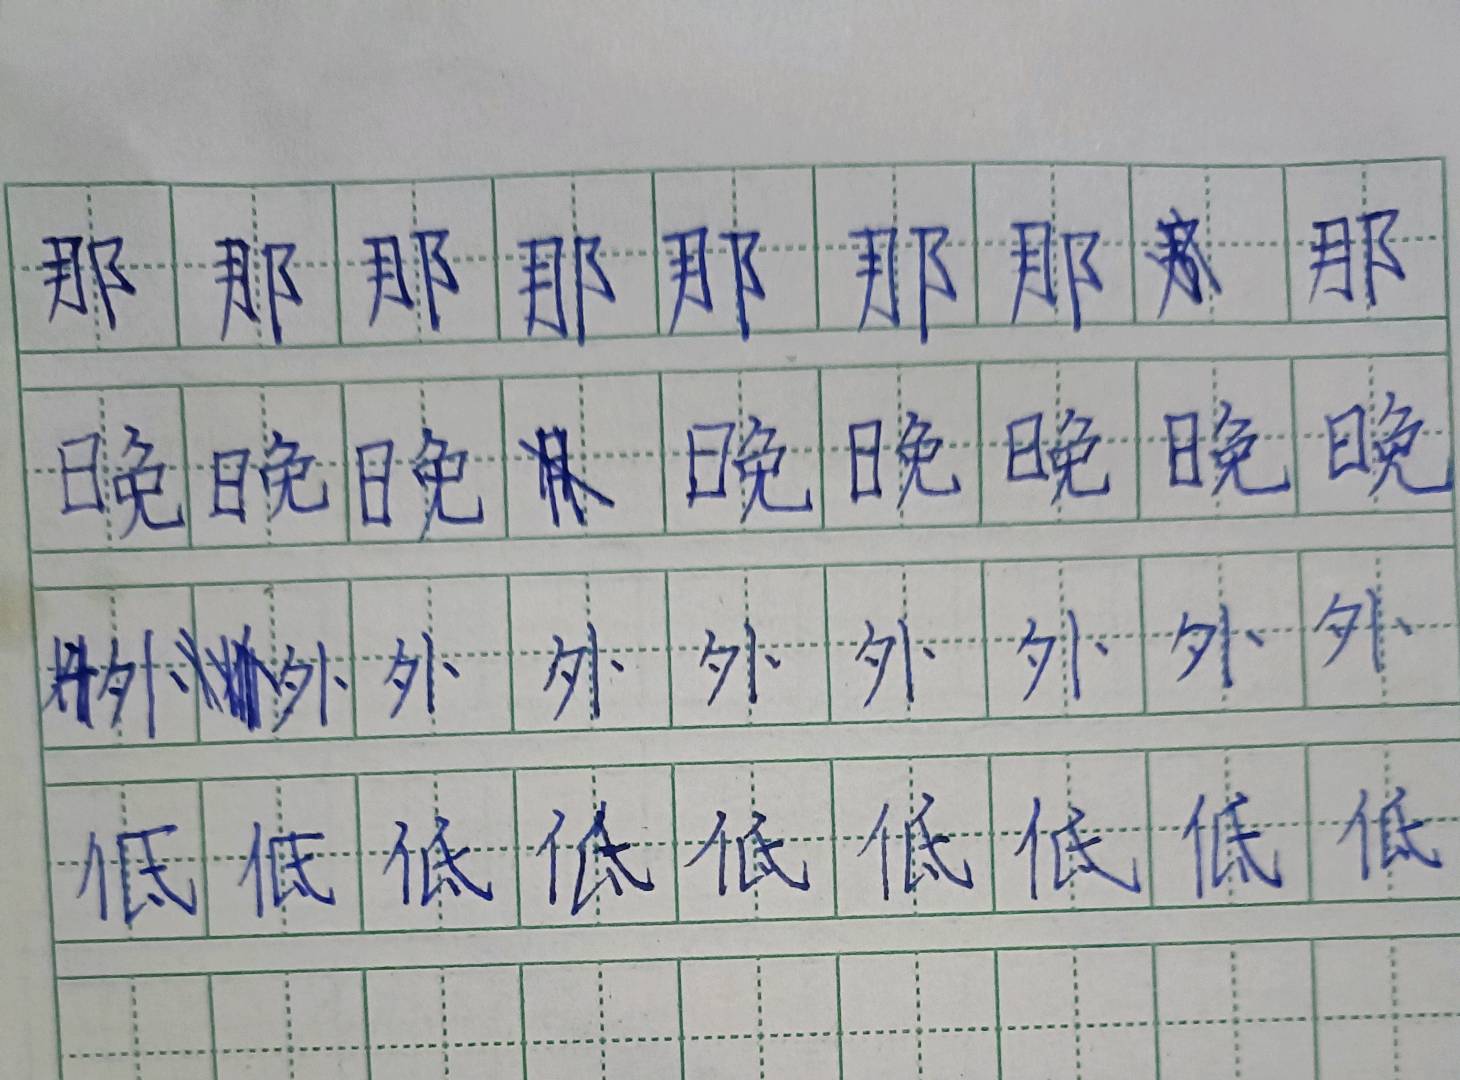 那那那那那那那那
晚晚晚晚晚晚晚晚
外外外外外外外外外
低低低低低低低低低